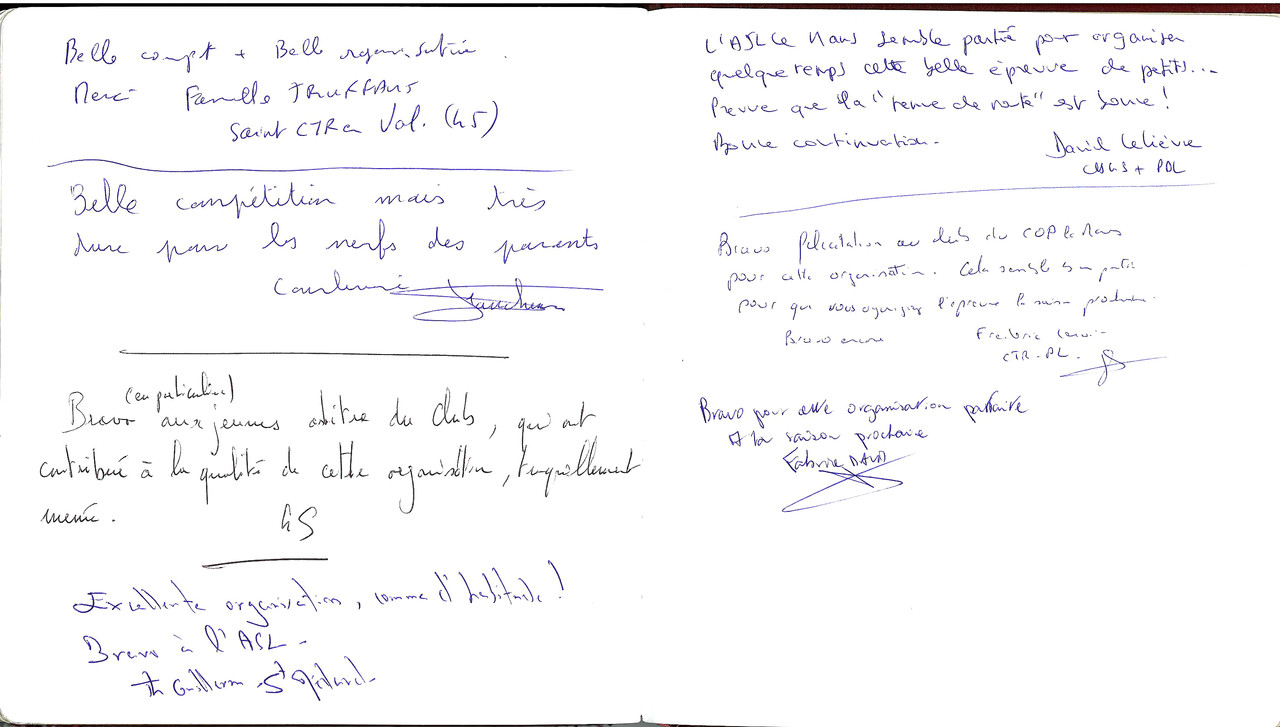 Belle compt + Belle organisation.
Merci Famille TRUFFAUT
Saint CYR en Val. (45)
Belle compétition mais très
dure pour les nerfs des parents
(en particulier)
Bravo aux jeunes arbitre du club, qui ont
contribué à la qualité de cette organisation, tranquillement
menée.
Excellente organisation, comme d'habitude !
Bravo à l'ASL.
St Médard.
L'ASL Le Mans semble partie pour organiser
quelque temps cette belle épreuve de petits...
Preuve que la "tenue de route" est bonne !
Bonne continuation.
David Lelièvre
+ PDL
Bravo Félicitation au club du COP le Mans
pour cette organisation. Cela semble bien partie
pour que vous organisiez l'épreuve la saison prochaine.
Bravo encore
Frédéric
CTR. PL.
Bravo pour cette organisation parfaite
A la saison prochaine
Fabrice DAVID